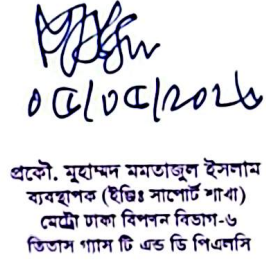 ০৫/০৫/২০২৬
প্রকৌ. মুহাম্মদ মমতাজুল ইসলাম
ব্যবস্থাপক (ইভিঃ সাপোর্ট শাখা)
মেট্রো ঢাকা বিপনন বিভাগ-৬
তিতাস গ্যাস টি এন্ড ডি পিএলসি